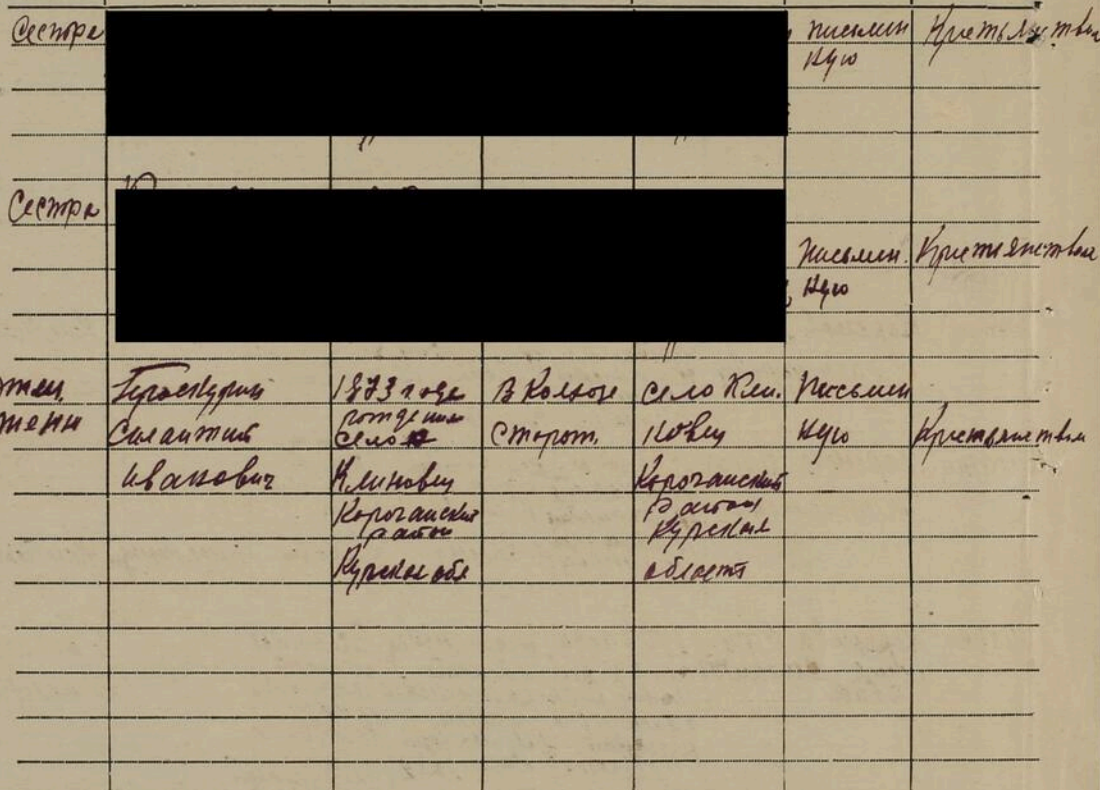 Сестра
письмен
ную
Крестьянства
Сестра
письмен.
ную
Крестьянства
жены
Проскурин
Силантий
Иванович
1873 года
рождения
село
Клиновец
Корочанский
район
Курская обл
В Колхозе
сторож.
село Кли-
новец
Корочанский
район
Курская
область
Письмен
ную
Крестьянства